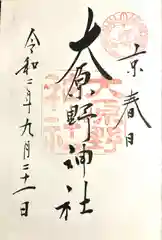 京春日
大原野神社
令和二年九月二十一日